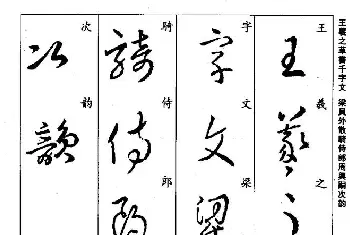 王羲之草書千字文 梁員外散騎侍郎周興嗣次韵
王羲之
王羲之
字文梁
字文梁
騎侍郎
騎侍郎
次韵
次韻